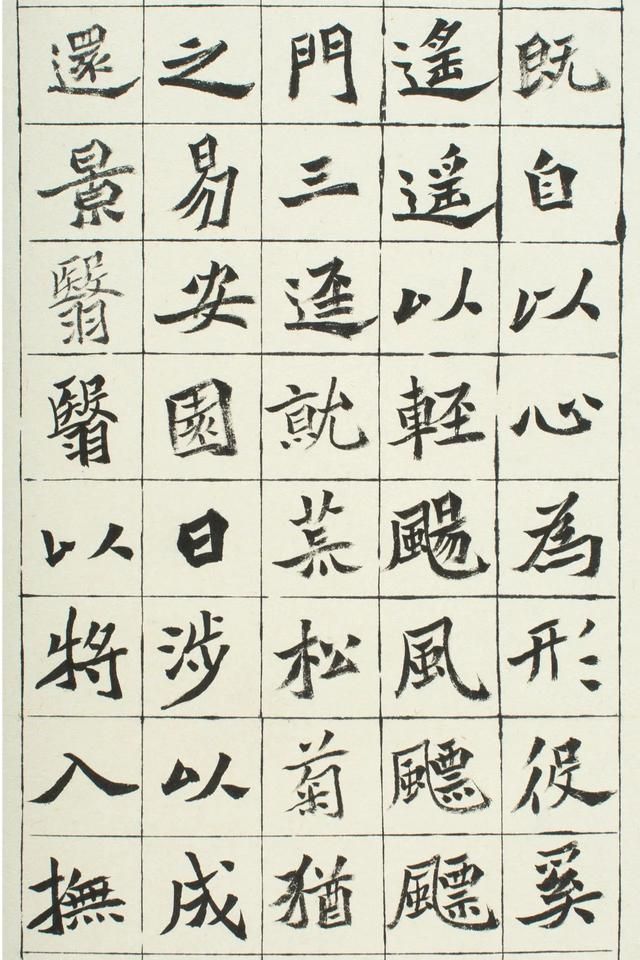 既自以心為形役奚
遙遙以輕颺風飄飄
門三逕就荒松菊猶
之易安園日涉以成
還景翳翳以將入撫